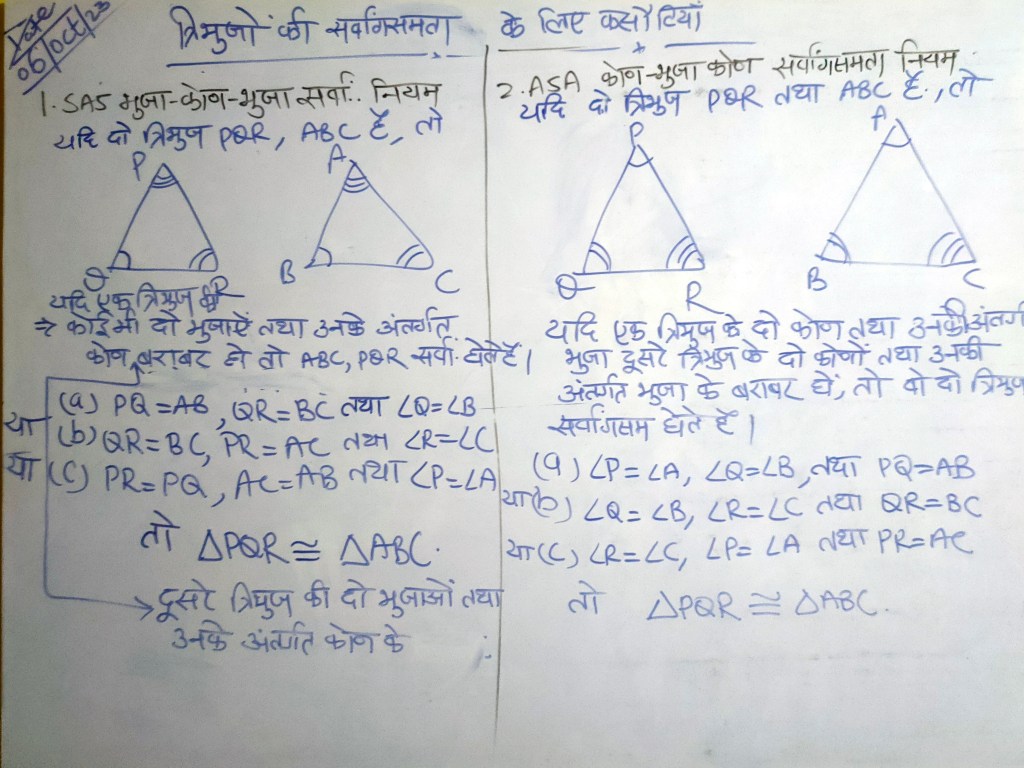 Date
06/Oct/23
त्रिभुजों की सर्वांगसमता के लिए कसौटियाँ
1. SAS भुजा-कोण-भुजा सर्वां.. नियम
यदि दो त्रिभुज PQR, ABC हैं, तो
P
A
Q
R
B
C
यदि एक त्रिभुज की
⇒ कोई भी दो भुजाएँ तथा उनके अंतर्गत
कोण बराबर हो तो ABC, PQR सर्वां. होते हैं।
(a) PQ=AB, QR=BC तथा ∠Q=∠B
या (b) QR=BC, PR=AC तथा ∠R=∠C
या (c) PR=PQ, AC=AB तथा ∠P=∠A
तो ΔPQR ≅ ΔABC.
→ दूसरे त्रिभुज की दो भुजाओं तथा
उनके अंतर्गत कोण के
2. ASA कोण-भुजा कोण सर्वांगसमता नियम
यदि दो त्रिभुज PQR तथा ABC हैं., तो
P
A
Q
R
B
C
यदि एक त्रिभुज के दो कोण तथा उनकी अंतर्गत
भुजा दूसरे त्रिभुज के दो कोणों तथा उनकी
अंतर्गत भुजा के बराबर हों, तो वो दो त्रिभुज
सर्वांगसम होते हैं।
(a) ∠P=∠A, ∠Q=∠B, तथा PQ=AB
या (b) ∠Q=∠B, ∠R=∠C तथा QR=BC
या (c) ∠R=∠C, ∠P=∠A तथा PR=AC
तो ΔPQR ≅ ΔABC.